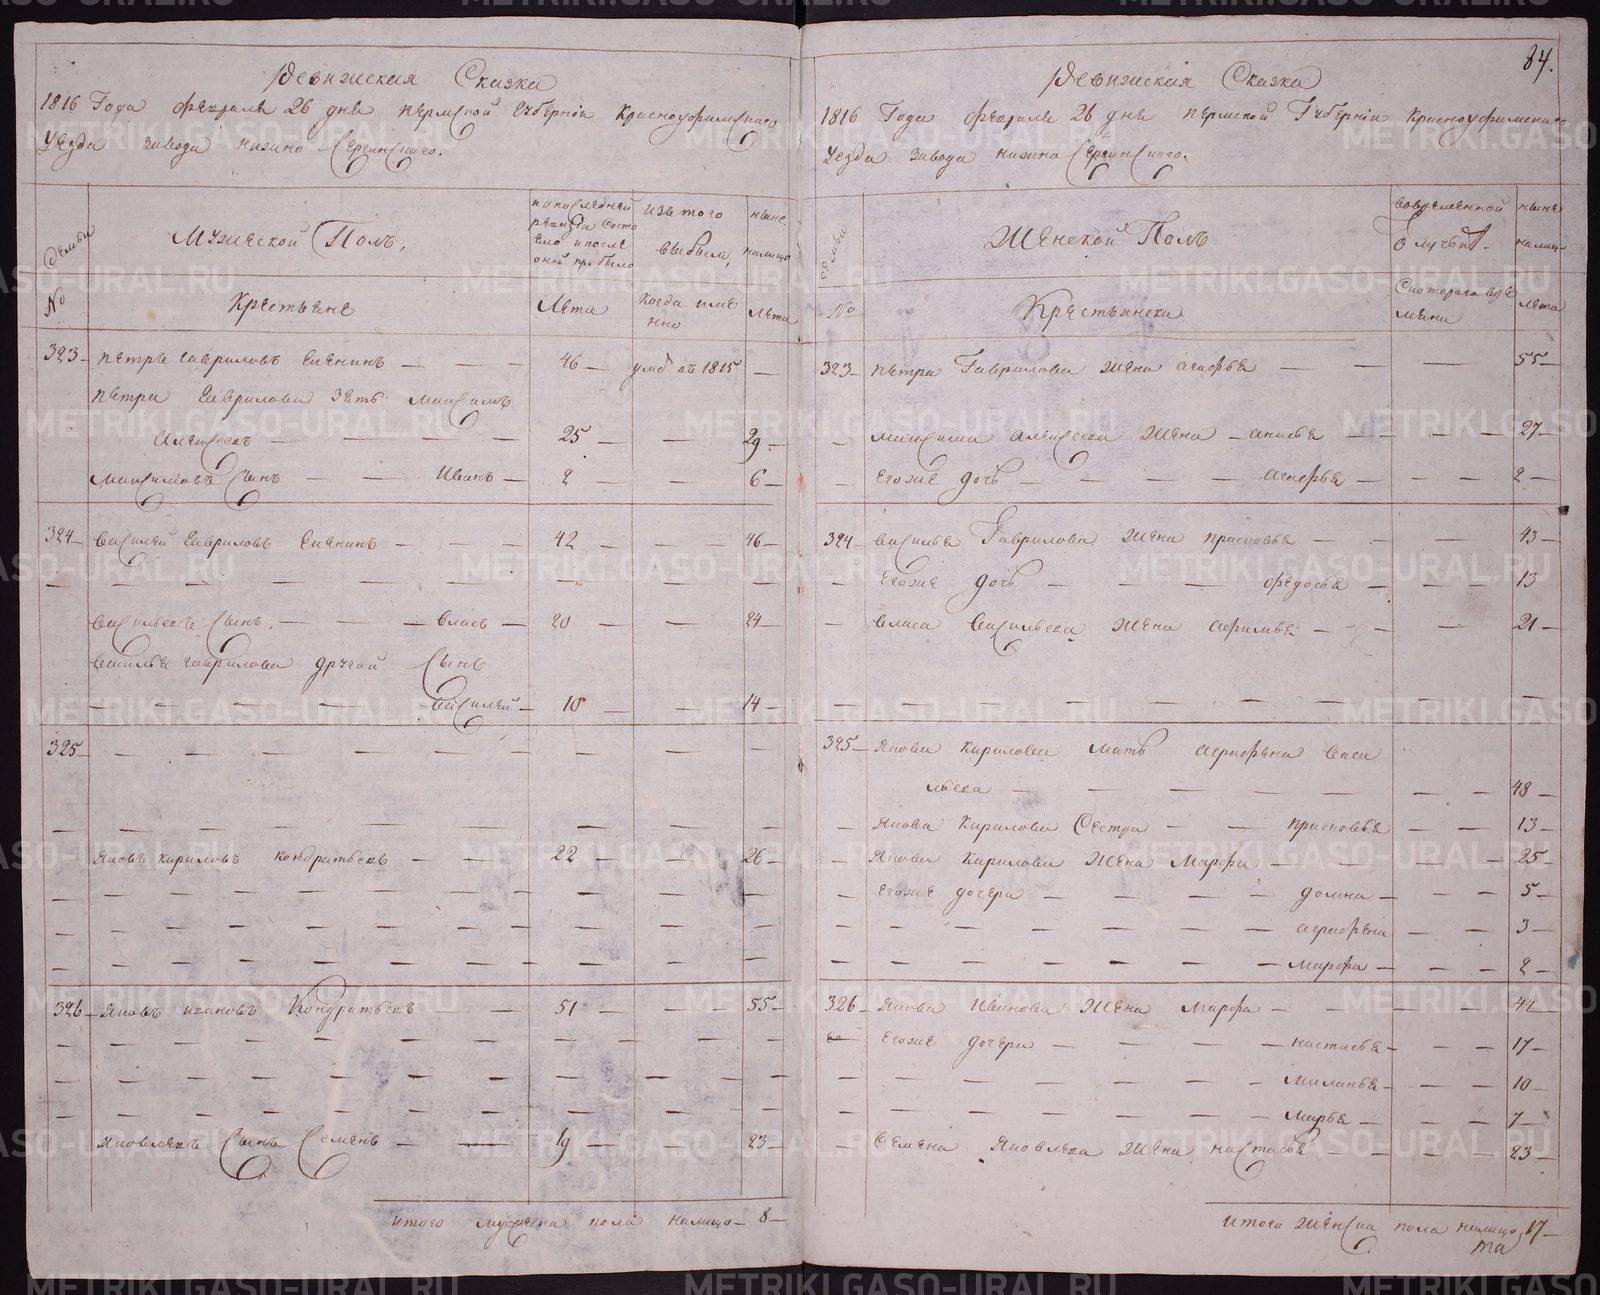 Ревижская Сказка
1816 Года февраля 26 дня пермской Губернiи Красноуфимскаго
Уезда завода нижно Сергинскаго.
Семьи
Мужеской Полъ,
по последней ревизiи состояло и после оной прибыло
Изъ того выбыло,
ныне налицо
№
Крестьяне
Лета
Когда имянно
Лета
323 Петръ Гавриловъ Еленинъ — 46 — умре въ 1815 —
Петра Гаврилова Зять Максимъ
Алексеевъ — 25 — — 29 —
Максимовъ Сынъ — Иванъ — 2 — — 6 —
324 Василей Гавриловъ Еленинъ — 42 — — 46 —
Васильевъ Сынъ — Власъ — 20 — — 24 —
Василья Гаврилова другой Сынъ
Василей — 10 — — 14 —
325 —
Яковъ Кириловъ Кондратьевъ — 22 — — 26 —
326 Яковъ Ивановъ Кондратьевъ — 51 — — 55 —
Яковлевъ Сынъ Семенъ — 19 — — 23 —
итого мужеска пола налицо — 8 —
84.
Ревижская Сказка
1816 Года февраля 26 дня пермской Губернiи Красноуфимскаго
Уезда завода нижно Сергинскаго.
Семьи
Женской Полъ
Во временной отлучке
ныне налицо
№
Крестьянска
С котораго времяни
Лета
323 Петра Гаврилова жена агафья — — 55 —
Максима алексеева жена — анисья — — 27 —
Егоже дочь — агафья — — 2 —
324 Василья Гаврилова жена прасковья — — 43 —
Егоже дочь — федосья — — 13
Власа Васильева жена афимья — — 21 —
325 Якова Кирилова мать аграфена Васи
льева — — 48 —
Якова Кирилова Сестра — прасковья — — 13 —
Якова Кирилова жена Марфа — — 25 —
Егоже дочери — домна — — 5 —
аграфена — — 3 —
марфа — — 2 —
326 Якова Иванова жена марфа — — 42 —
Егоже дочери — настасья — — 17 —
миланья — — 10
марья — — 7 —
Семена Яковлева жена настасья — — 23 —
итого женска пола налицо 17 —